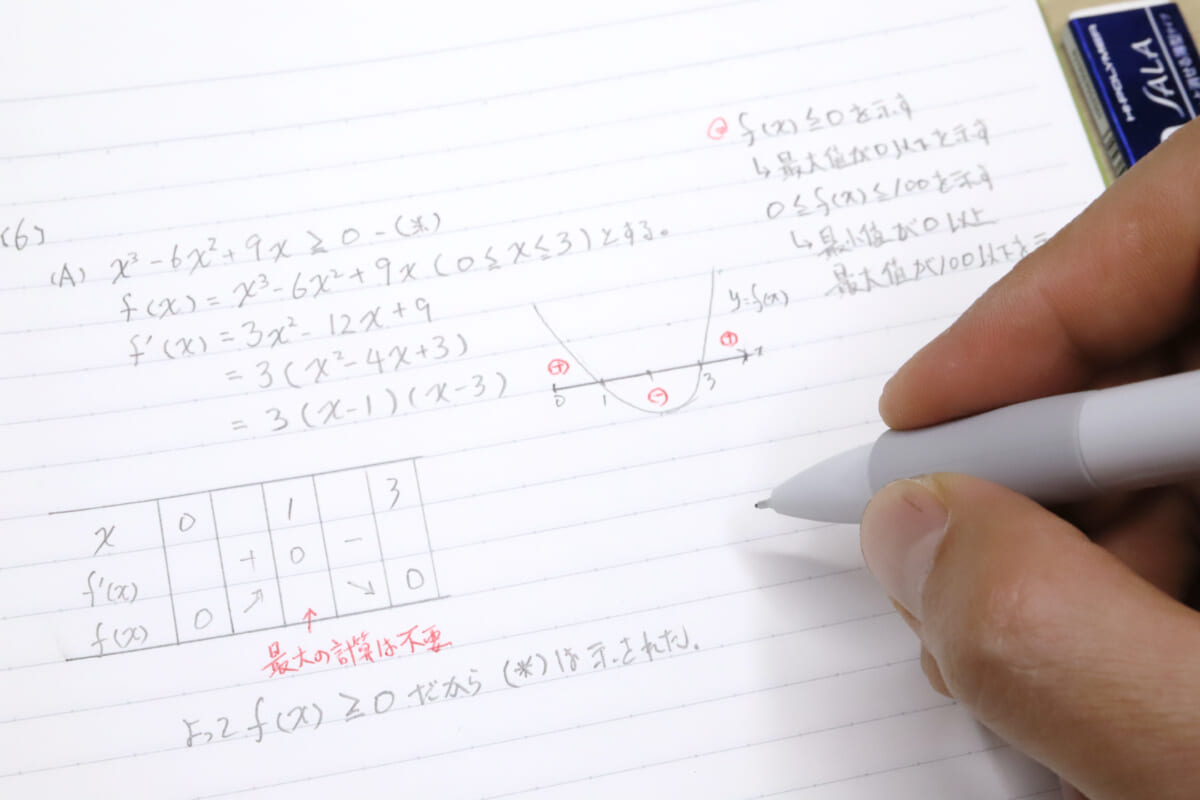 (6)
(A) x³-6x²+9x≧0-(※)
f(x)=x³-6x²+9x(0≦x≦3)とする。
f'(x)=3x²-12x+9
=3(x²-4x+3)
=3(x-1)(x-3)
f(x)≦0を示す
↳最大値が0以下を示す
0≦f(x)≦100を示す
↳最小値が0以上
最大値が100以下を示
y=f(x)
⊕ ⊖ ⊕ x
0 1 3
x 0 1 3
f'(x) + 0 -
f(x) 0 ↗ ↘ 0
↑
最大の計算は不要
よってf(x)≧0だから(※)は示された.
HI-POLYMER
SALA